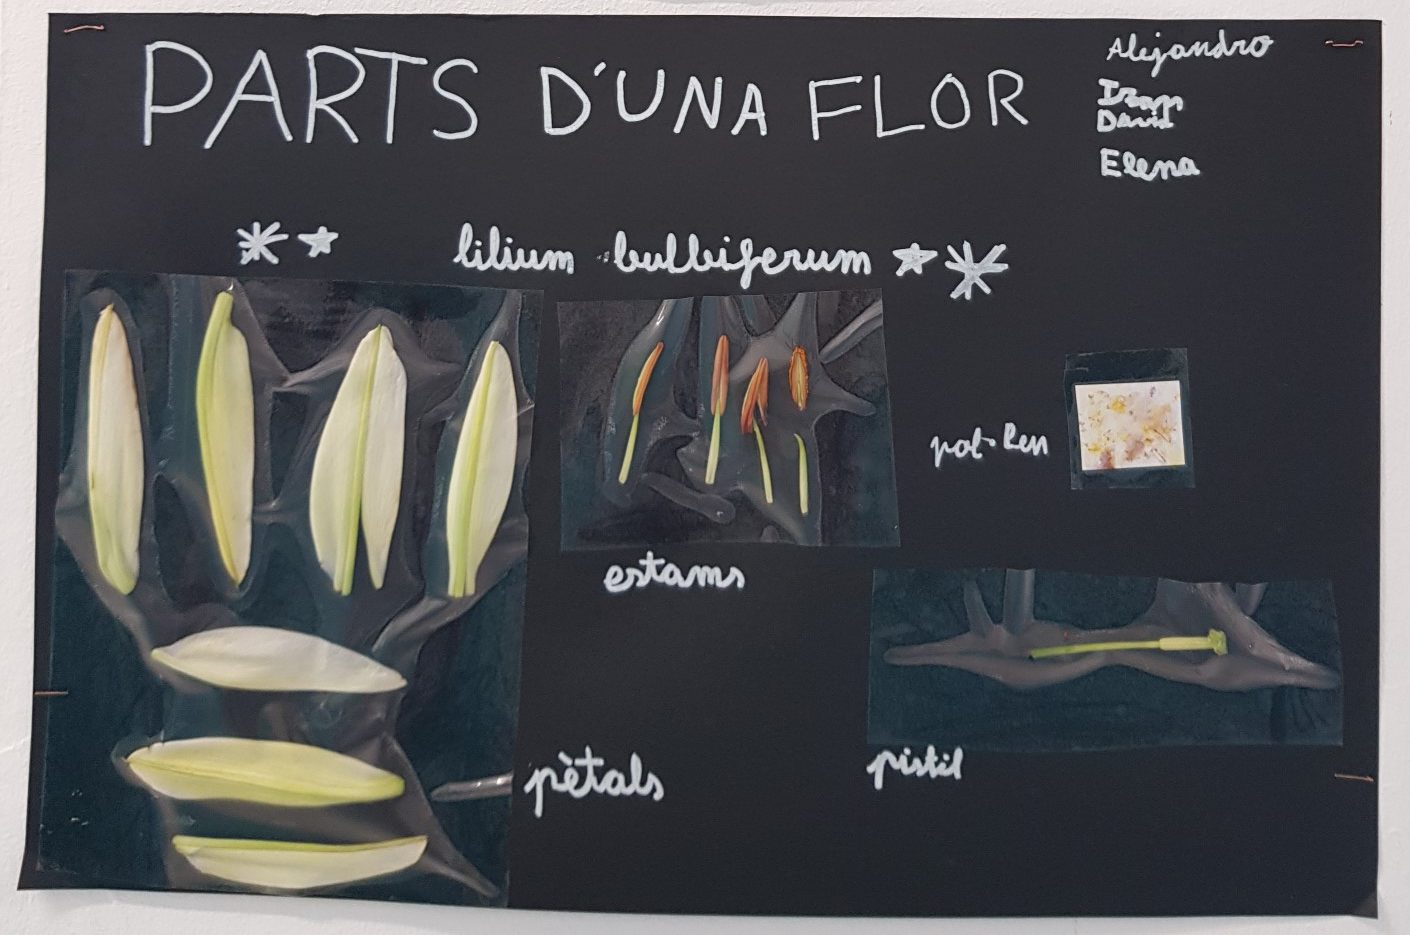 PARTS D'UNA FLOR
Alejandro
Izan
David
Elena
lilium bulbiferum
pol·len
estams
pètals
pistil